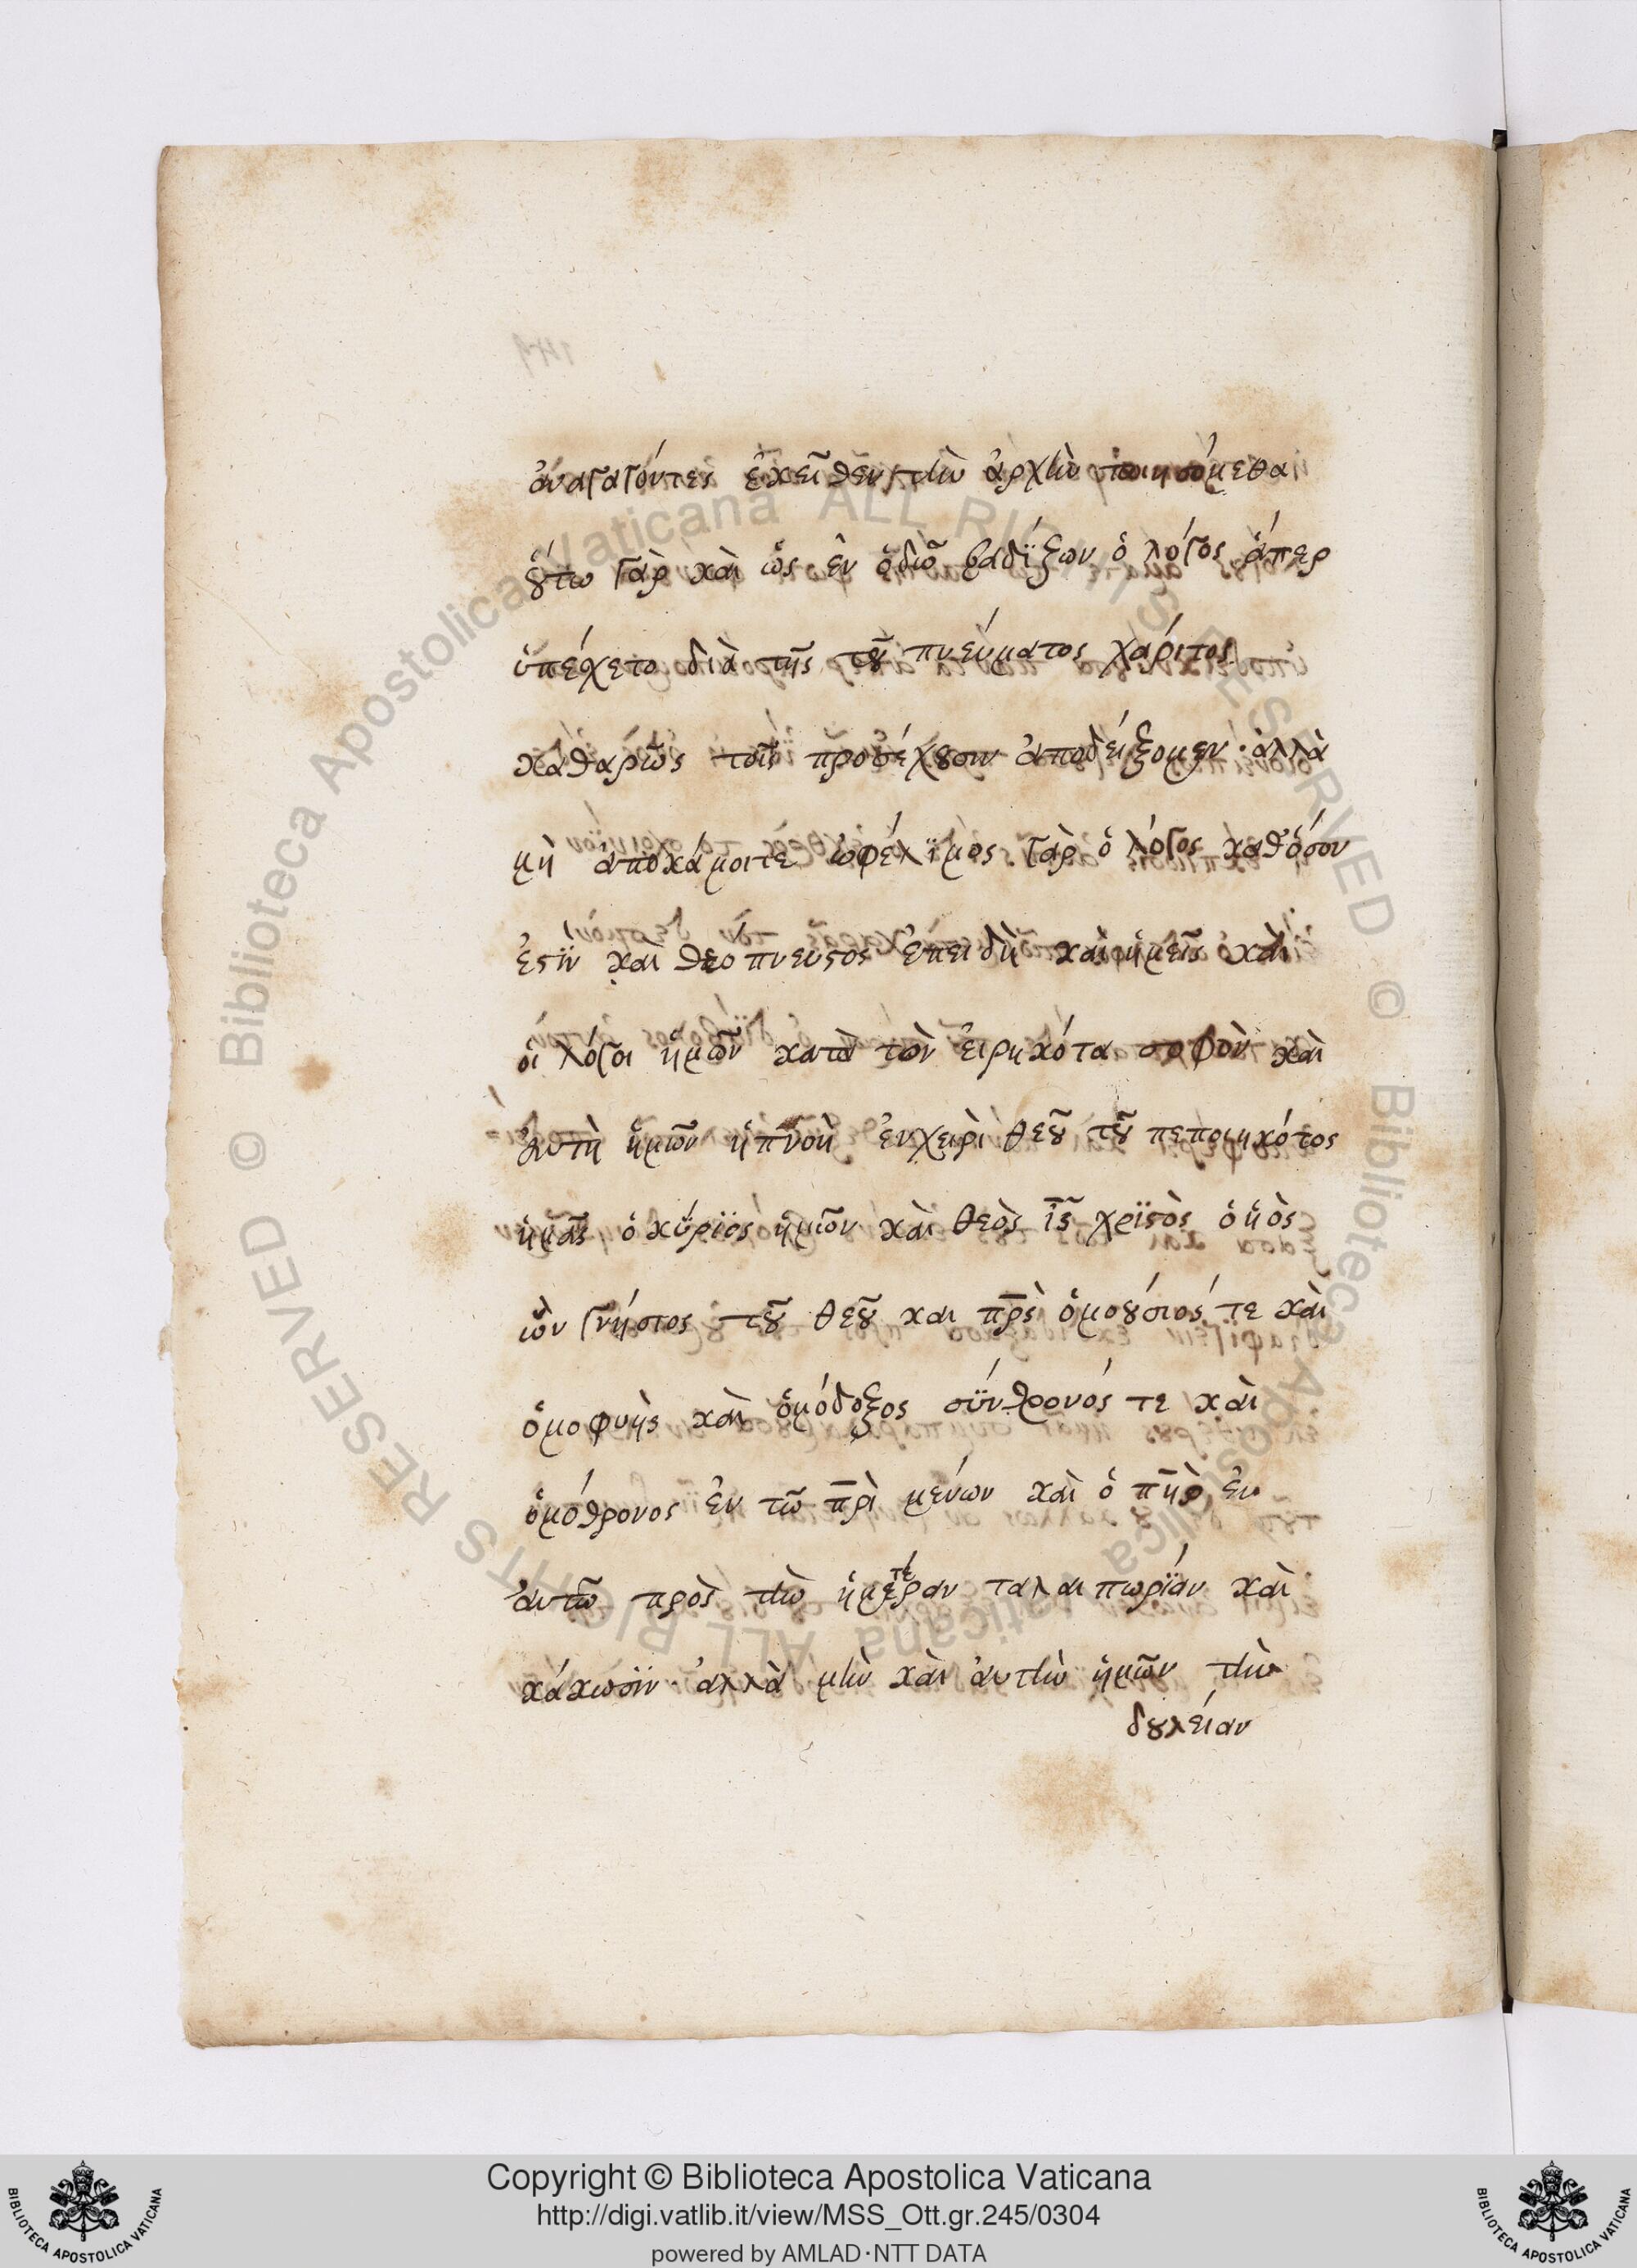 ἀναγαγόντες ἐκεῖθεν τὴν ἀρχὴν ποιησόμεθα
οὕτω γὰρ καὶ ὡς ἐν ὁδῶ βαδΐζων ὁ λόγος ἅπερ
ὑπέσχετο διὰ τῆς τοῦ πνεύματος χάριτος
καθαρῶς τοῖς προσέχουσιν ἀποδείξομεν· ἀλλὰ
μὴ ἀποκάμοιτε ὠφέλϊμος γὰρ ὁ λόγος καθόσον
ἐστϊν καὶ θεοπνευστος ἐπειδὴ καὶ ἡμεῖς καὶ
οἱ λόγοι ἡμῶν κατὰ τὸν εἰρηκότα σοφὸν καὶ
ἀυτὴ ἡμῶν ἡ πνοὴ ἐν χειρὶ θεοῦ τοῦ πεποιηκότος
ἡμᾶς ὁ κύρϊος ἡμῶν καὶ θεὸς ι̅ς̅ χρϊστὸς ὁ ὑὸς
ὢν γνήσιος τοῦ θεοῦ και π̅ρ̅ς̅ ὁμοούσιός τε καὶ
ὁμοφυὴς καὶ ὁμόδοξος σύνθρονός τε καὶ
ὁμόθρονος ἐν τῶ π̅ρ̅ὶ μένων καὶ ὁ π̅η̅ρ̅ ἐν
ἀυτῶ πρὸς τὴν ἡμετέραν ταλαιπωρΐαν καὶ
κάκωσϊν· ἀλλὰ μὴν καὶ ἀυτὴν ἡμῶν τὴν
δουλείαν
Copyright © Biblioteca Apostolica Vaticana
http://digi.vatlib.it/view/MSS_Ott.gr.245/0304
powered by AMLAD·NTT DATA
BIBLIOTECA APOSTOLICA VATICANA
BIBLIOTECA APOSTOLICA VATICANA
© Biblioteca Apostolica Vaticana ALL RIGHTS RESERVED © Biblioteca Apostolica Vaticana ALL RIGHTS RESERVED